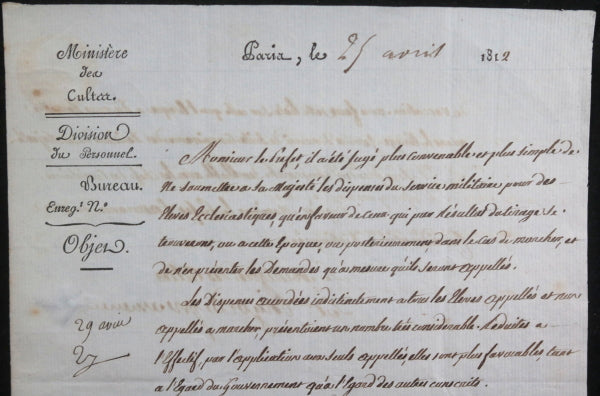 Ministère
des
Cultes.
Division
du Personnel.
Bureau.
Enreg.t N.o
Objet
29 avril
Paris, le 25 avril 1812
Monsieur le Préfet, il a été jugé plus convenable et plus simple de
Ne soumettre a sa Majesté les dispenses du service militaire pour des
Eleves Ecclesiastiques, qu'en faveur de Ceux qui par Résultat du tirage se
trouveront, ou a cette Epoque, ou postérieurement, dans le cas de marcher, et
de n'en présenter les Demandes qu'a mesure qu'ils seront appellés.
Les Dispenses accordées indistinctement a tous les Eleves appellés et non
appellés a marcher, présentaient un nombre très considerable. Réduites a
l'Effectif, par l'application aux seuls appellés, elles sont plus favorables, tant
a l'Egard du Gouvernement qu'a l'Egard des autres conscrits.